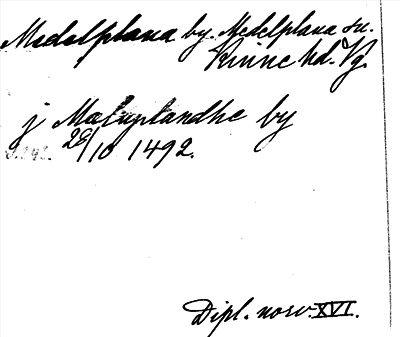 Medelplana by. Medelplana sn.
Kinne hd. Vg.
j Mæluplandhe by
28/10 1492.
Dipl. norv. XVI.